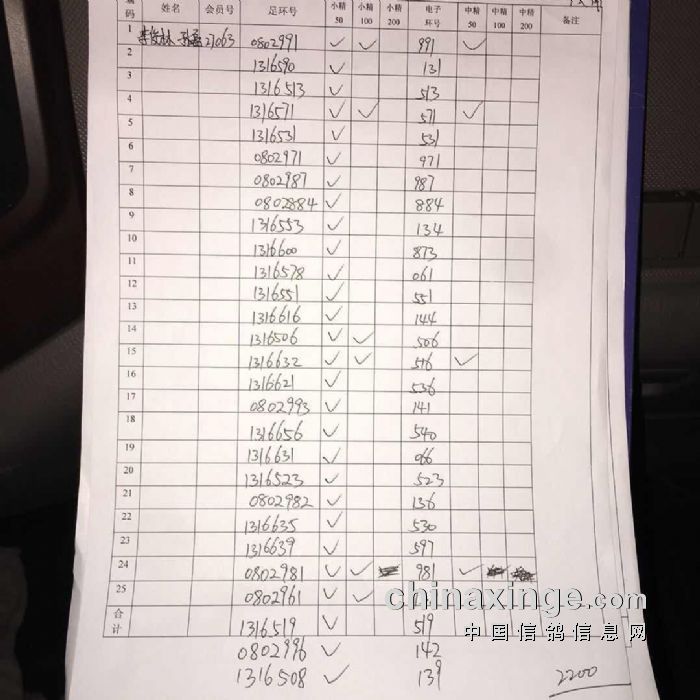 编码 姓名 会员号 足环号 小精50 小精100 小精200 电子环号 中精50 中精100 中精200 备注
1 李俊林 27063 0802991 ✓ ✓ 991 ✓
2 1316590 ✓ 131
3 1316513 ✓ 513
4 1316571 ✓ ✓ 571 ✓
5 1316531 ✓ 531
6 0802971 ✓ 971
7 0802987 ✓ 987
8 0802884 ✓ 884
9 1316553 ✓ 134
10 1316600 ✓ 873
11 1316578 ✓ 061
12 1316551 ✓ 551
13 1316616 ✓ 144
14 1316506 ✓ ✓ 506
15 1316632 ✓ ✓ 516 ✓
16 1316621 ✓ 536
17 0802993 ✓ 141
18 1316656 ✓ 540
19 1316631 ✓ 066
20 1316523 ✓ 523
21 0802982 ✓ 136
22 1316635 ✓ 530
23 1316639 ✓ 597
24 0802981 ✓ ✓ 981 ✓
25 0802961 ✓ ✓
合计 1316519 ✓ 519
0802996 ✓ 142
1316508 ✓ 139
2200
chinaxinge.com
中国信鸽信息网